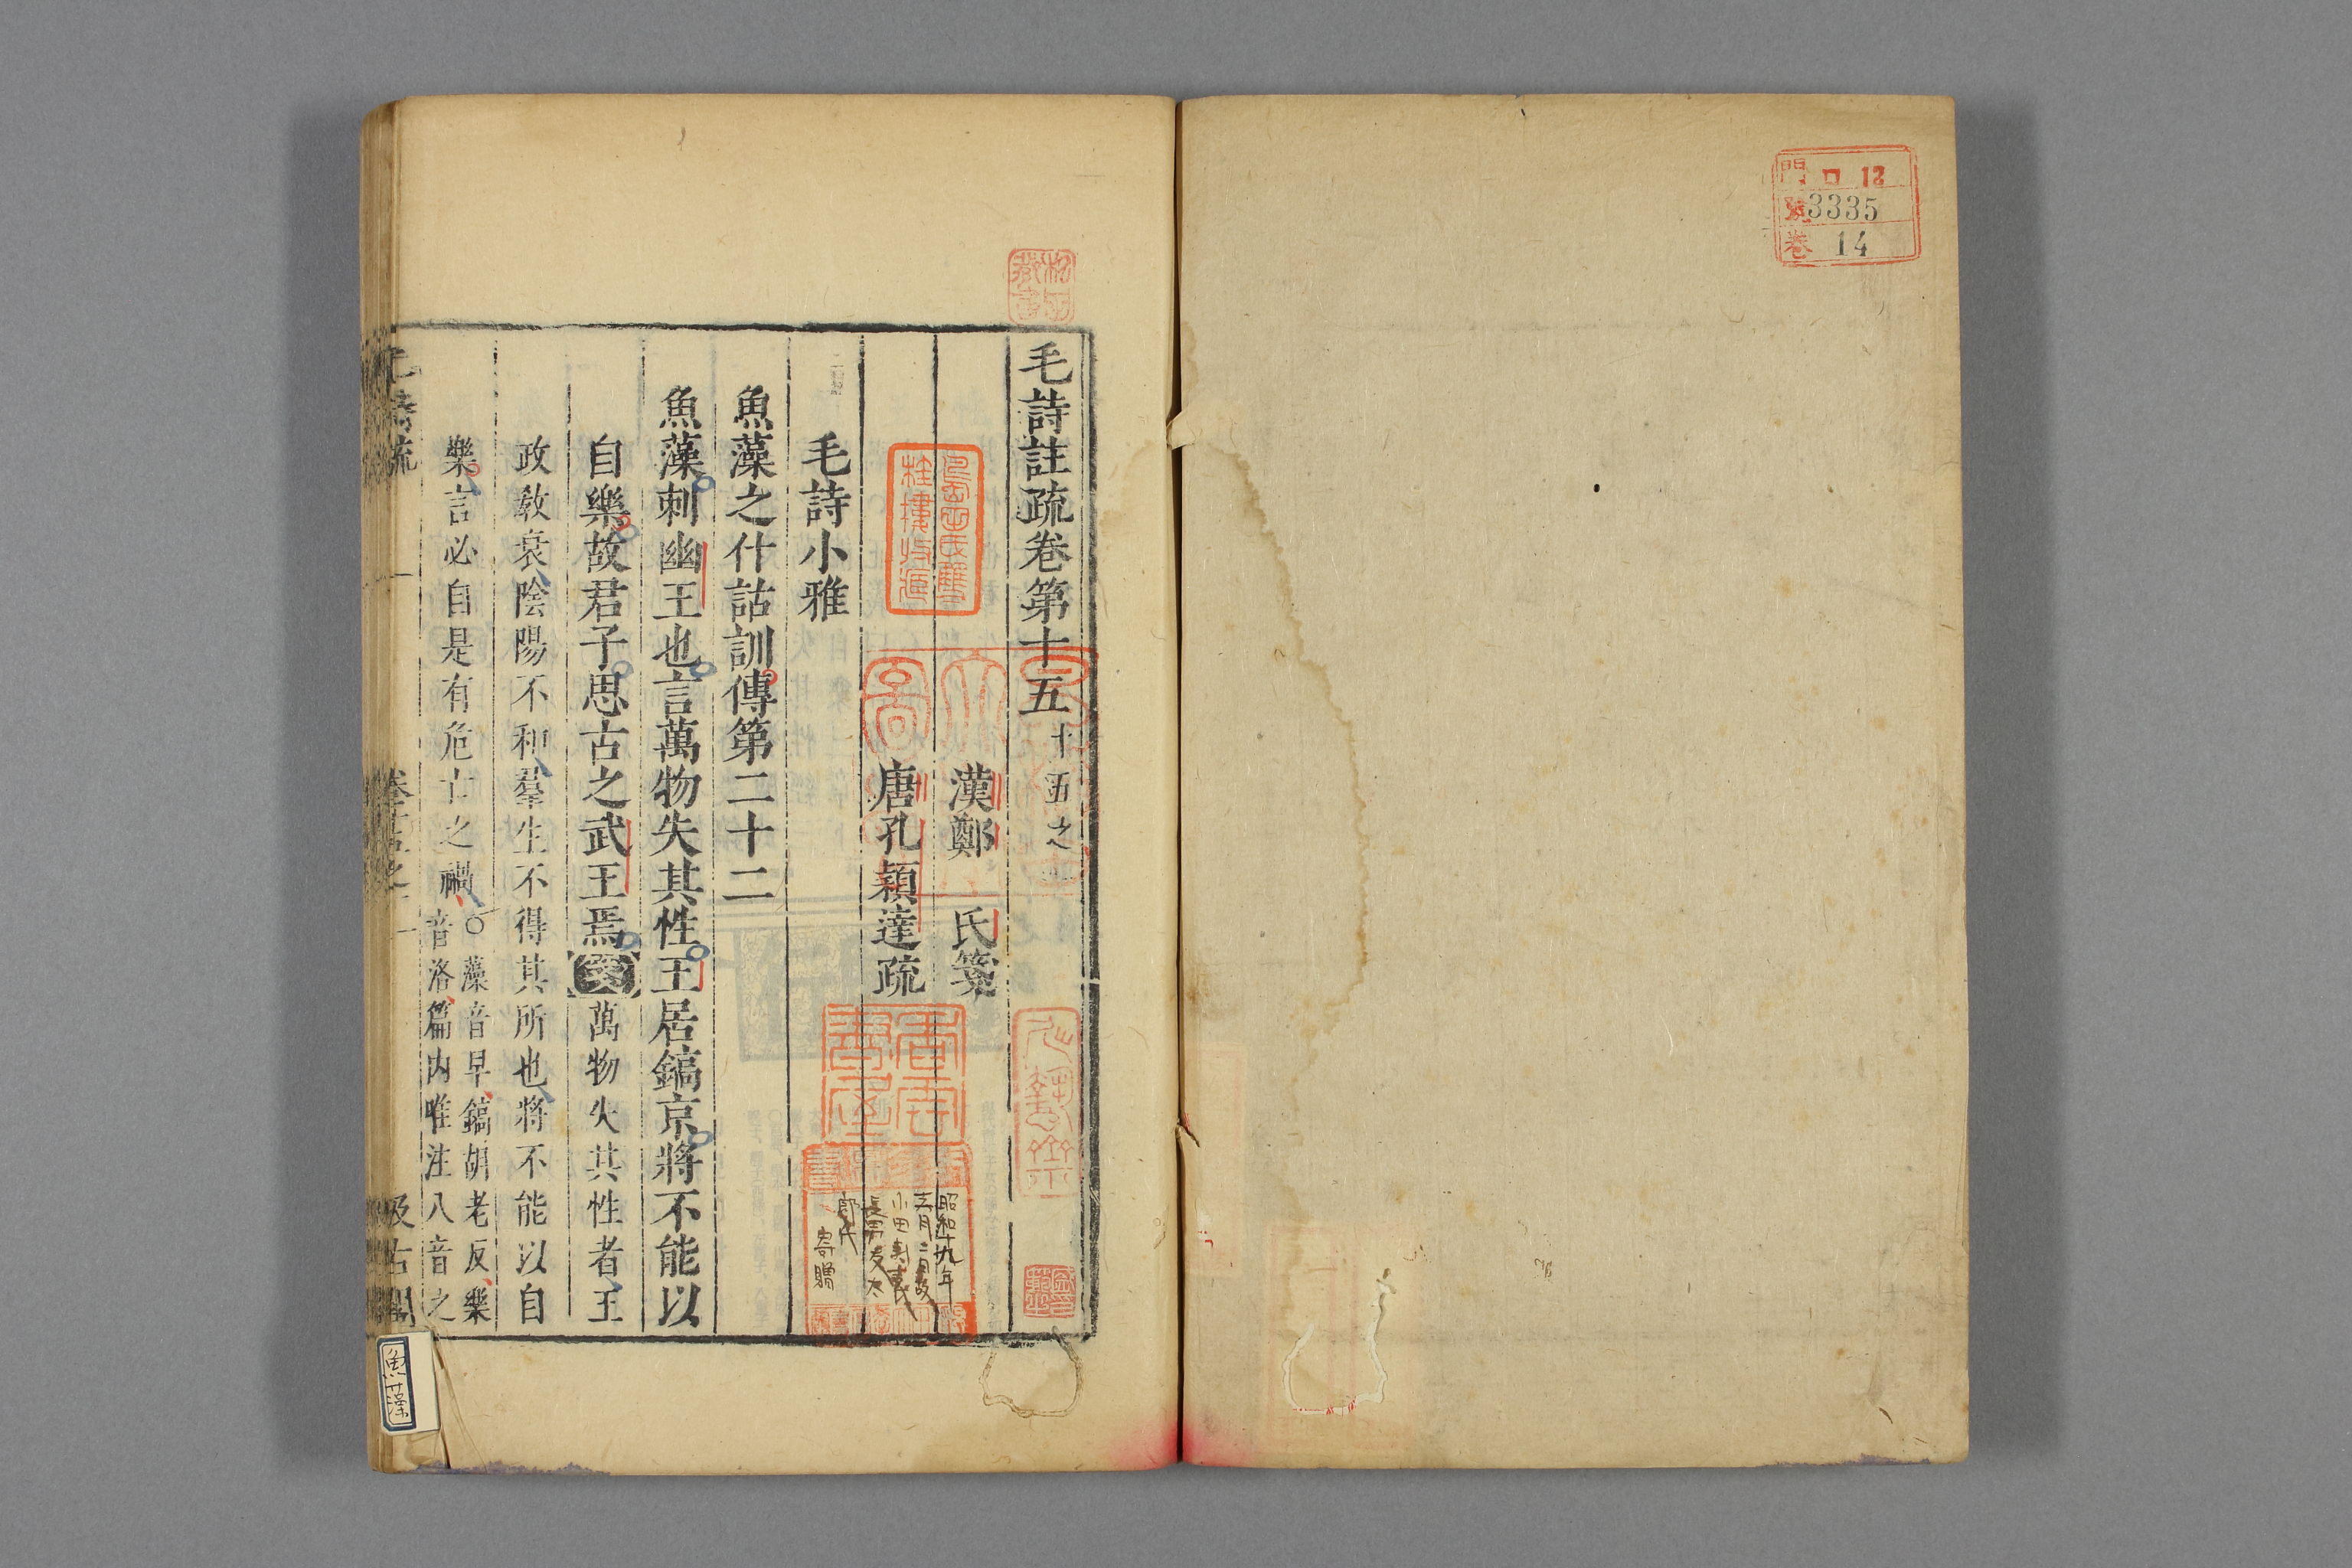 門 ロ 12
號 3335
卷 14
毛詩註疏卷第十五 十五之一
漢鄭氏箋
唐孔穎達疏
毛詩小雅
魚藻之什詁訓傳第二十二
魚藻刺幽王也言萬物失其性王居鎬京將不能以
自樂故君子思古之武王焉箋萬物失其性者王
政教衰陰陽不和羣生不得其所也將不能以自
樂言必自是有危亡之禍○藻音早鎬胡老反樂
音洛篇内唯注八音之
昭和十九年
寄贈
魚藻